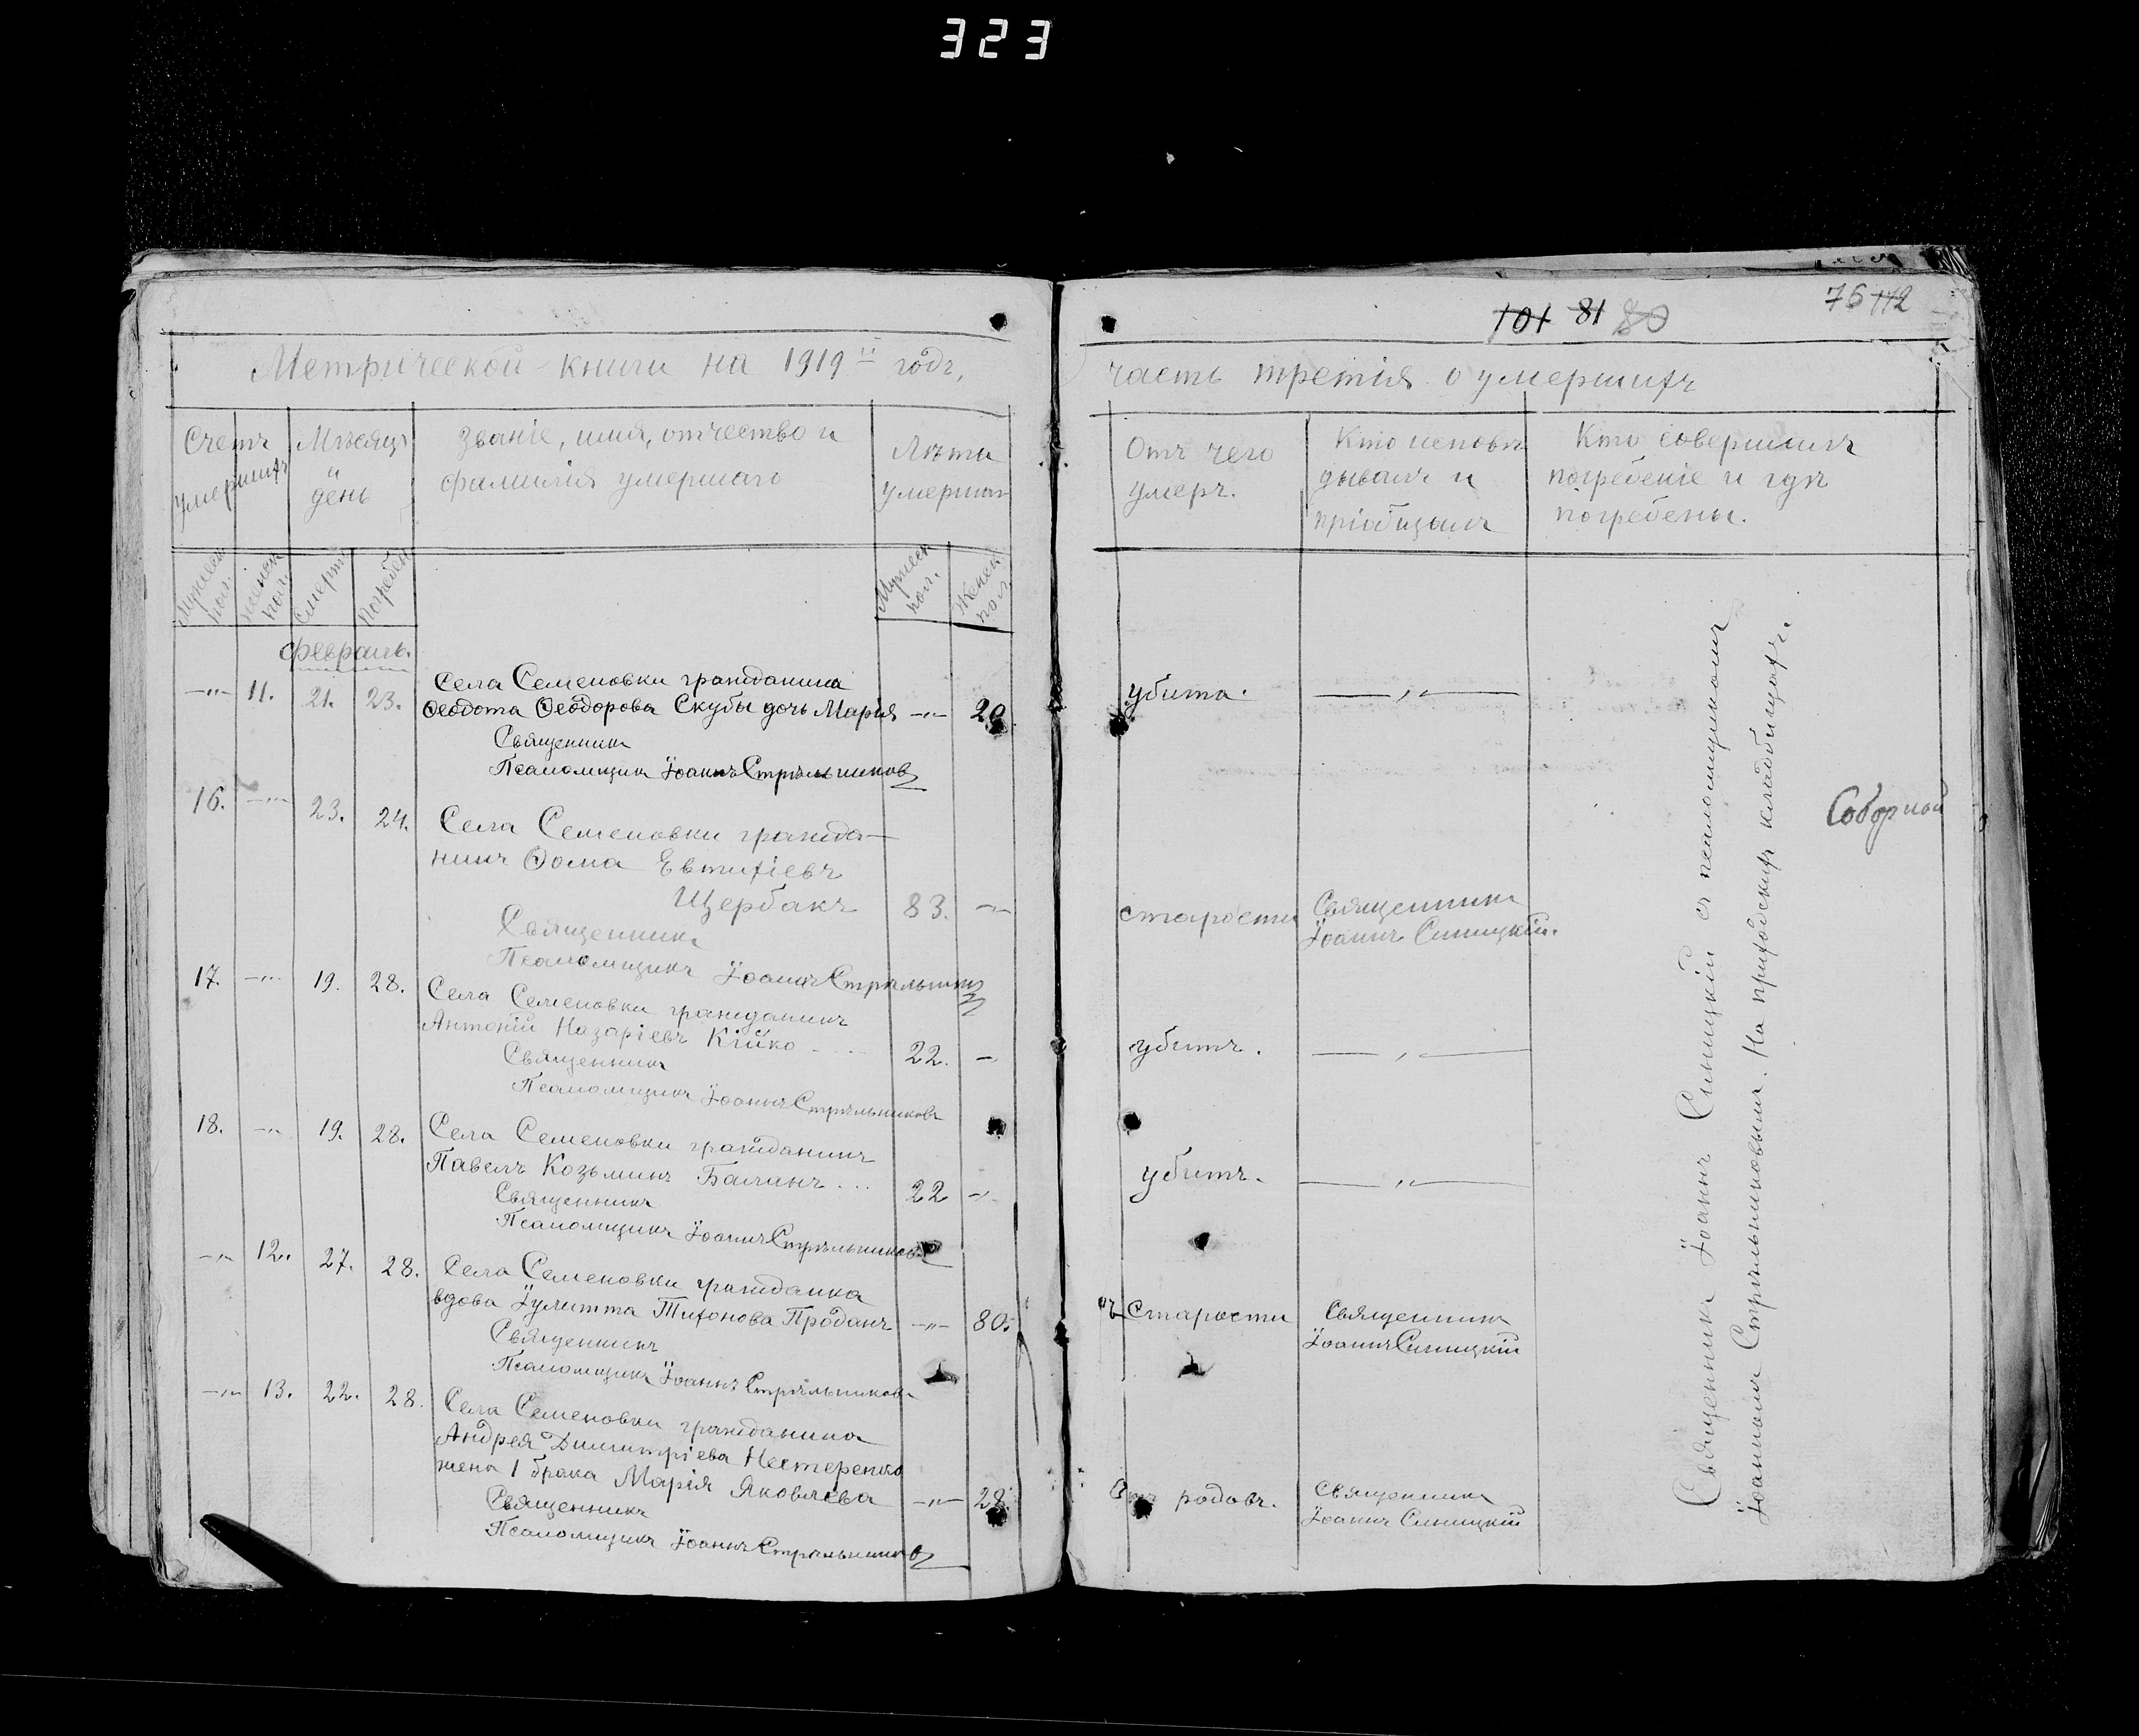 323
Метрической книги на 1919й годъ,
Счетъ умершихъ
Мѣсяцъ и день
Званіе, имя, отчество и
фамилія умершаго
Лѣта
умершаго
Мужеск. пол.
Женск. пол.
Смерти
Погребен.
Мужеск. пол.
Женск. пол.
Февраль.
—"— 11. 21. 23. Села Семеновки гражданина
Ѳеодота Ѳеодорова Скубы дочь Марія —"— 20
Священникъ
Псаломщикъ Іоаннъ Стрѣльниковъ
16. —"— 23. 24. Села Семеновки гражда-
нинъ Ѳома Евтихіевъ
Щербакъ 83. —"—
Священникъ
Псаломщикъ Іоаннъ Стрѣльниковъ
17. —"— 19. 28. Села Семеновки гражданинъ
Антоній Назаріевъ Кійко 22. —
Священникъ
Псаломщикъ Іоаннъ Стрѣльниковъ
18. —"— 19. 28. Села Семеновки гражданинъ
Павелъ Козьминъ Балинъ ... 22 —"—
Священникъ
Псаломщикъ Іоаннъ Стрѣльниковъ
—"— 12. 27. 28. Села Семеновки гражданка
вдова Іулитта Тихонова Проданъ —"— 80.
Священникъ
Псаломщикъ Іоаннъ Стрѣльниковъ
—"— 13. 22. 28. Села Семеновки гражданина
Андрея Димитріева Нестеренко
жена 1 брака Марія Яковлева —"— 28.
Священникъ
Псаломщикъ Іоаннъ Стрѣльниковъ
101 81 80
76 112
часть третія о умершихъ
Отъ чего
умеръ.
Кто исповѣ-
дывалъ и
пріобщалъ
Кто совершалъ
погребеніе и гдѣ
погребены.
убита. —"—
старости Священникъ
Іоаннъ Синицкій.
убитъ. —"—
убитъ. —"—
отъ старости Священникъ
Іоаннъ Синицкій
Отъ родовъ. Священникъ
Іоаннъ Синицкій
Священникъ Іоаннъ Синицкій съ псаломщикомъ
Іоанномъ Стрѣльниковымъ. На приходскихъ кладбищахъ.
Соборной